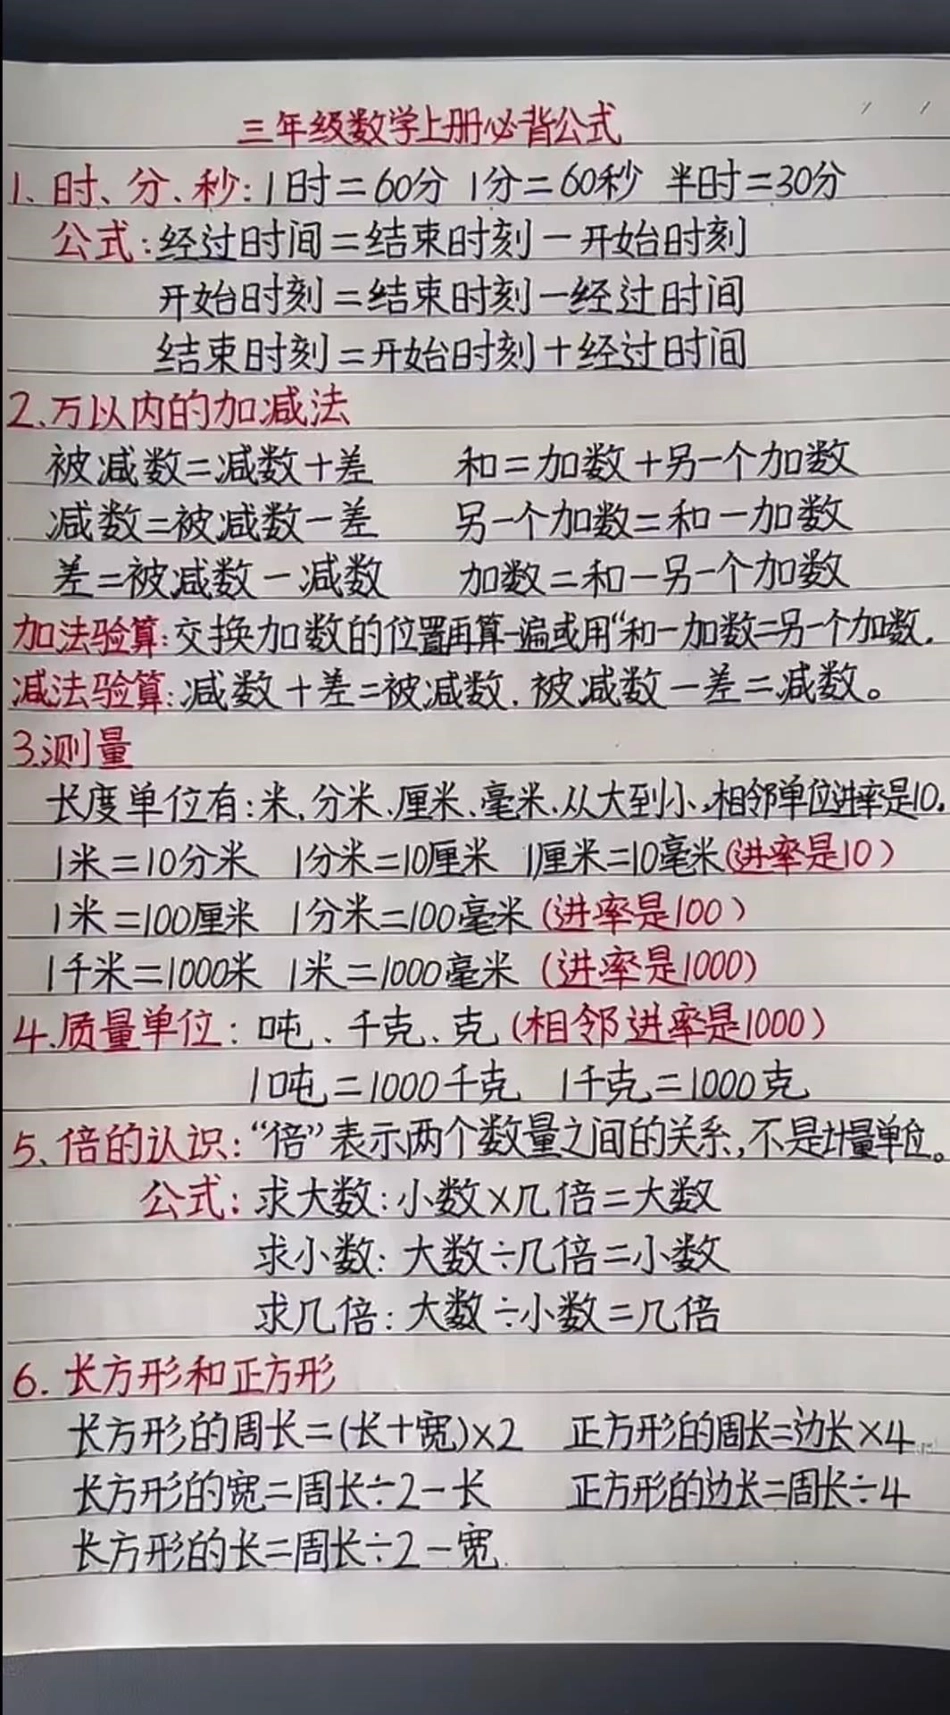 三年级数学上册必背公式
1、时、分、秒:1时=60分 1分=60秒 半时=30分
公式:经过时间=结束时刻-开始时刻
开始时刻=结束时刻-经过时间
结束时刻=开始时刻+经过时间
2、万以内的加减法
被减数=减数+差 和=加数+另一个加数
减数=被减数-差 另一个加数=和-加数
差=被减数-减数 加数=和-另一个加数
加法验算:交换加数的位置再算一遍或用“和-加数=另一个加数.
减法验算:减数+差=被减数.被减数-差=减数。
3.测量
长度单位有:米、分米、厘米、毫米.从大到小,相邻单位进率是10。
1米=10分米 1分米=10厘米 1厘米=10毫米(进率是10)
1米=100厘米 1分米=100毫米(进率是100)
1千米=1000米 1米=1000毫米(进率是1000)
4.质量单位:吨、千克、克(相邻进率是1000)
1吨=1000千克 1千克=1000克
5、倍的认识:“倍”表示两个数量之间的关系,不是计量单位。
公式:求大数:小数×几倍=大数
求小数:大数÷几倍=小数
求几倍:大数÷小数=几倍
6.长方形和正方形
长方形的周长=(长+宽)×2 正方形的周长=边长×4
长方形的宽=周长÷2-长 正方形的边长=周长÷4
长方形的长=周长÷2-宽